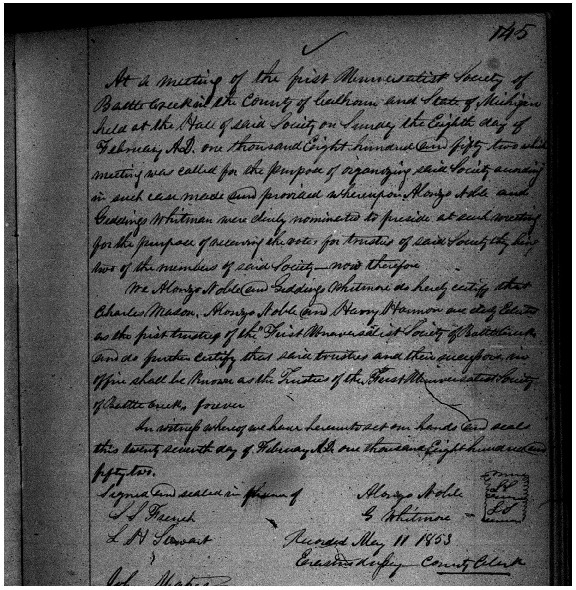 145
At a meeting of the first Universalist Society of
Battle Creek in the County of Calhoun and State of Michigan
held at the Hall of said Society on Sunday the Eighth day of
February A.D. one thousand Eight hundred and fifty two which
meeting was called for the purpose of organizing said Society according
in such case made and provided whereupon Alonzo Noble and
Geddings Whitman were duly nominated to preside at such meeting
for the purpose of receiving the votes for trustees of said Society they being
two of the members of said Society — now therefore
We Alonzo Noble and Geddings Whitmore do hereby certify that
Charles Mason, Alonzo Noble and Henry Harmon are duly Elected
as the first trustees of the "First Universalist Society of Battle Creek
and do further certify that said trustees and their successors in
office shall be Known as the Trustees of the First Universalist Society
of Battle Creek, forever
In witness whereof we have hereunto set our hands and seals
this twenty seventh day of February A.D. one thousand Eight hundred and
fifty two.
Signed and sealed in presence of Alonzo Noble LS
S S French G Whitmore LS
L H Stewart Recorded May 11 1853
County Clerk